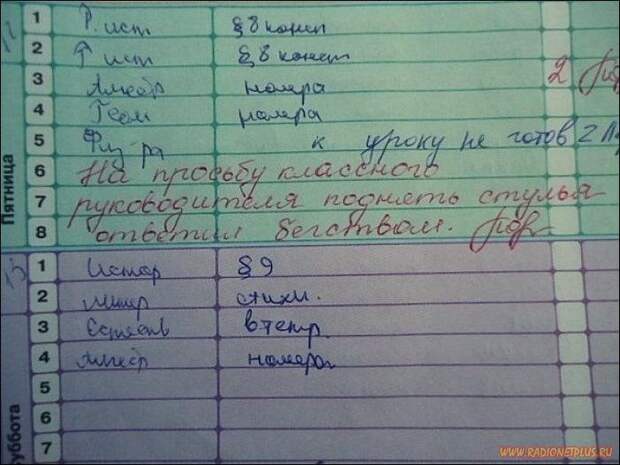 1 Р. ист § 8 консп
2 Р ист § 8 консп
3 Алгебр номера 2
4 Геом номера
5 Физ-ра к уроку не готов 2
6 На просьбу классного
7 руководителя поднять стулья
8 ответил бегством.
Пятница
1 Истор § 9
2 Литер стихи.
3 Естеств в тетр
4 Алгебр номера
5
6
7
Суббота
WWW.RADIONETPLUS.RU